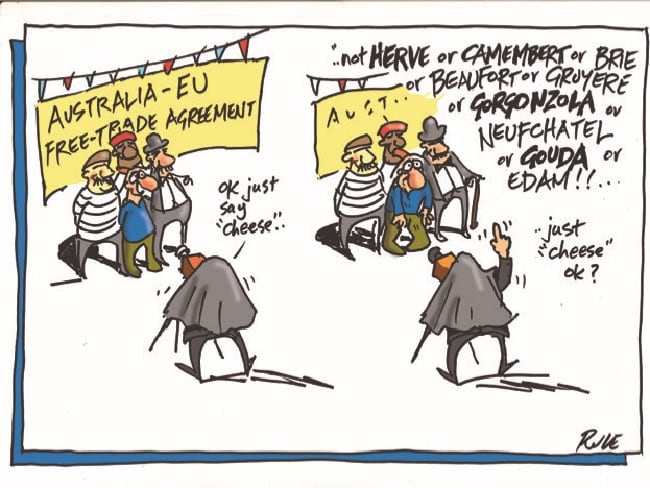 AUSTRALIA-EU
FREE-TRADE AGREEMENT
OK just
say
"cheese"..
AUST..
..not HERVE or CAMEMBERT or BRIE
or BEAUFORT or GRUYERE
or GORGONZOLA or
NEUFCHATEL
or GOUDA or
EDAM!!...
..just
"cheese"
OK?
RULE